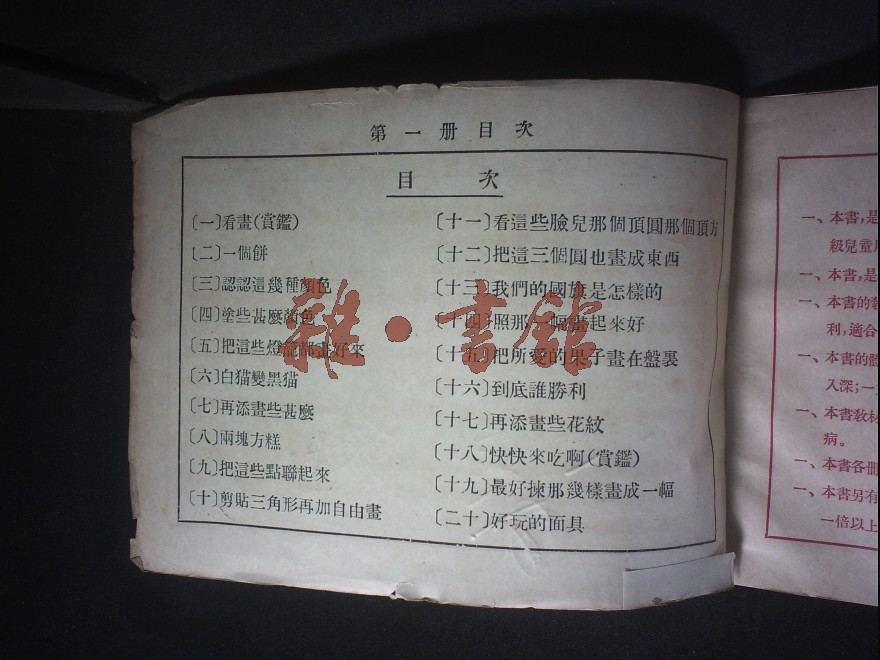 第一册目次
目次
〔一〕看畫(賞鑑)
〔二〕一個餅
〔三〕認認這幾種顏色
〔四〕塗些甚麽顏色
〔五〕把這些燈籠都畫好來
〔六〕白猫變黑猫
〔七〕再添畫些甚麽
〔八〕兩塊方糕
〔九〕把這些點聯起來
〔十〕剪貼三角形再加自由畫
〔十一〕看這些臉兒那個頂圓那個頂方
〔十二〕把這三個圓也畫成東西
〔十三〕我們的國旗是怎樣的
〔十四〕照那一幅畫起來好
〔十五〕把所愛的果子畫在盤裏
〔十六〕到底誰勝利
〔十七〕再添畫些花紋
〔十八〕快快來吃啊(賞鑑)
〔十九〕最好揀那幾樣畫成一幅
〔二十〕好玩的面具
雜·書館
一、本書,是
級兒童
一、本書,是
一、本書的教
利,適合
一、本書的體
入深;一
一、本書教材
病。
一、本書各冊
一、本書另有
一倍以上